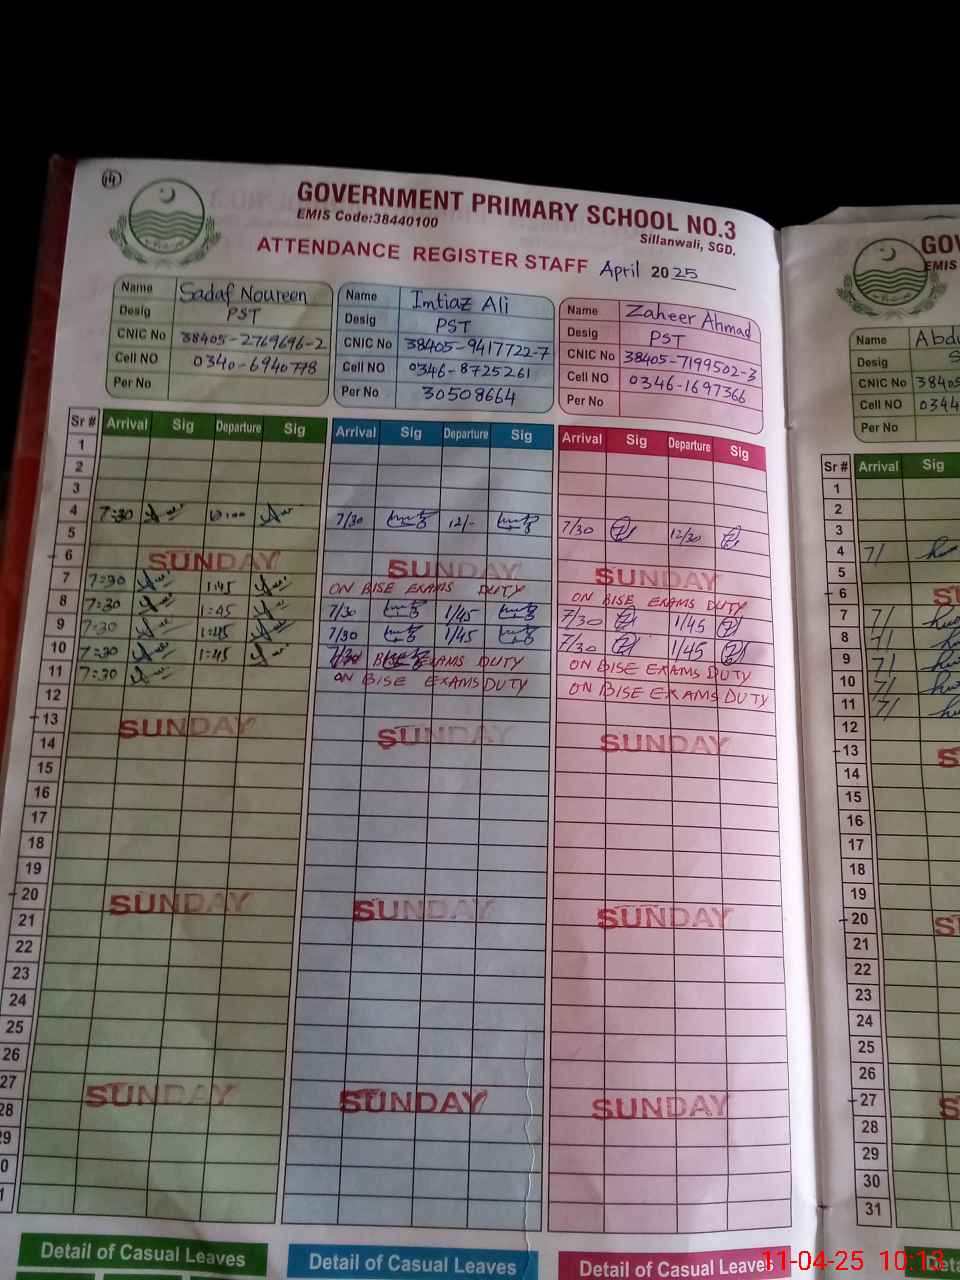 GOVERNMENT PRIMARY SCHOOL NO.3
EMIS Code:38440100
Sillanwali, SGD.
ATTENDANCE REGISTER STAFF April 2025
Name Sadaf Noureen
Desig PST
CNIC No 38405-2769696-2
Cell NO 0340-6940778
Per No
Name Imtiaz Ali
Desig PST
CNIC No 38405-9417722-7
Cell NO 0346-8725261
Per No 30508664
Name Zaheer Ahmad
Desig PST
CNIC No 38405-7199502-3
Cell NO 0346-1697366
Per No
Sr # Arrival Sig Departure Sig Arrival Sig Departure Sig Arrival Sig Departure Sig
1
2
3
4 7:30 7/30 12/- 7/30 12/30
5
6 SUNDAY SUNDAY SUNDAY
7 7:30 1:45 ON BISE EXAMS DUTY ON BISE EXAMS DUTY
8 7:30 1:45 7/30 1/45 7/30 1/45
9 7:30 1:45 7/30 1/45 7/30 1/45
10 7:30 1:45 BISE EXAMS DUTY ON BISE EXAMS DUTY
11 7:30 ON BISE EXAMS DUTY ON BISE EXAMS DUTY
12
13 SUNDAY SUNDAY SUNDAY
14
15
16
17
18
19
20 SUNDAY SUNDAY SUNDAY
21
22
23
24
25
26
27 SUNDAY SUNDAY SUNDAY
28
29
30
31
Detail of Casual Leaves Detail of Casual Leaves Detail of Casual Leaves
GO
EMIS
Name
Desig
CNIC No
Cell NO 0344
Per No
Sr # Arrival Sig
1
2
3
4 7/
5
6
7 7/
8 7/
9 7/
10 7/
11 7/
12
13
14
15
16
17
18
19
20
21
22
23
24
25
26
27
28
29
30
31
11-04-25 10:13